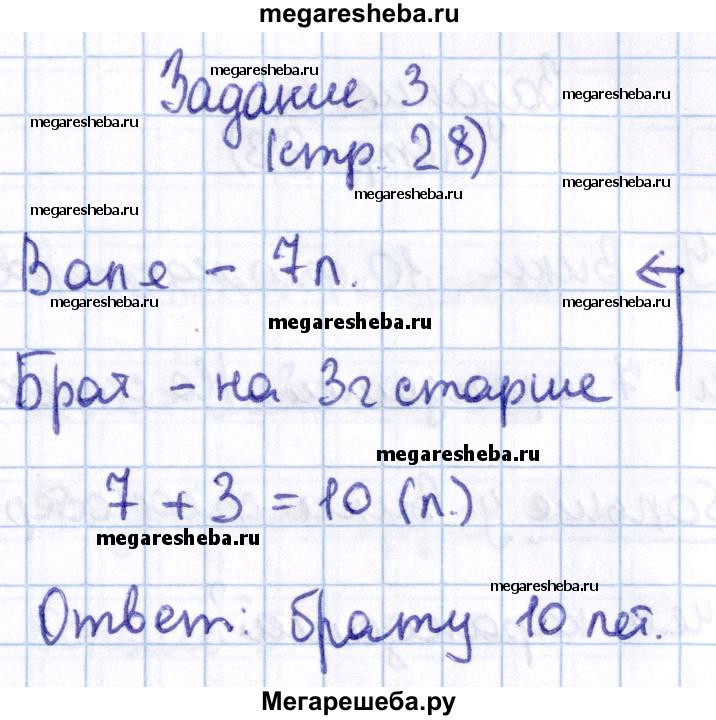 megaresheba.ru
megaresheba.ru
Задание 3
megaresheba.ru
megaresheba.ru
(стр. 28)
megaresheba.ru
megaresheba.ru
megaresheba.ru
Ваня - 7 л.
megaresheba.ru
megaresheba.ru
megaresheba.ru
Брат - на 3 г старше
megaresheba.ru
7 + 3 = 10 (л.)
megaresheba.ru
megaresheba.ru
Ответ: брату 10 лет.
Мегарешеба.ру